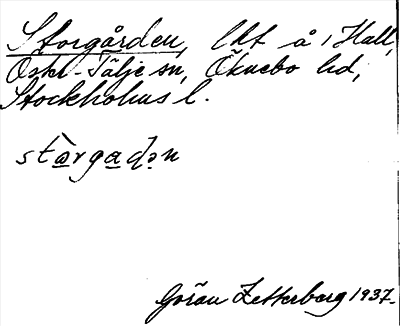 Storgården, lht å Hall,
Öster-Tälje sn, Öknebo hd,
Stockholms l.
stòrgadən
Göran Zetterberg 1937.